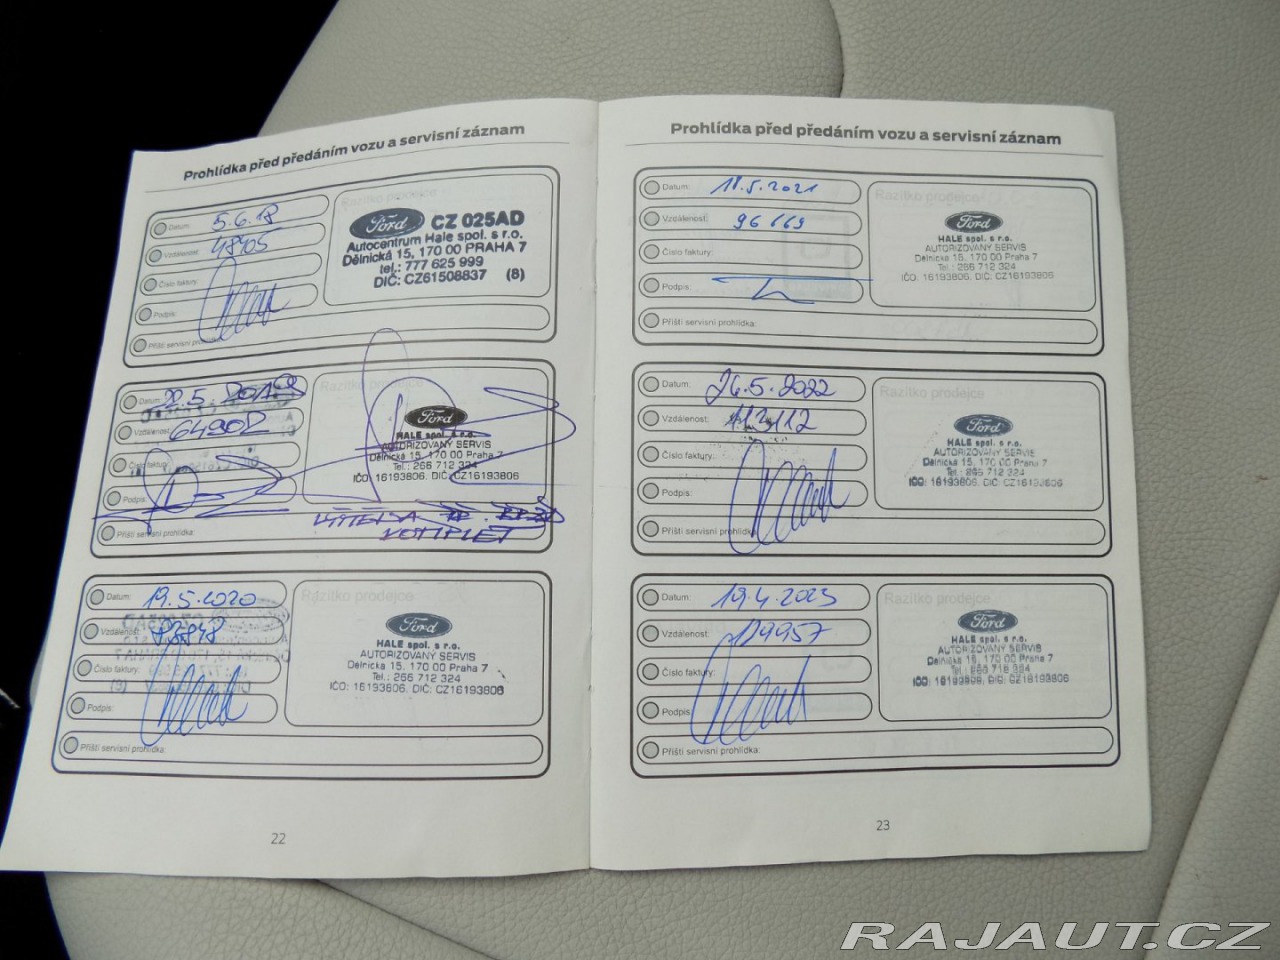 Prohlídka před předáním vozu a servisní záznam
Datum: 5.6.18
Vzdálenost:
Číslo faktury:
Podpis:
Příští servisní prohlídka:
Razítko prodejce
Ford CZ 025AD
Autocentrum Hale spol. s r.o.
Dělnická 15, 170 00 PRAHA 7
tel.: 777 625 999
DIČ: CZ61508837 (8)
Datum: 22.5
Vzdálenost: 64902
Číslo faktury:
Podpis:
Příští servisní prohlídka:
Razítko prodejce
Ford
HALE spol. s r.o.
AUTORIZOVANÝ SERVIS
Dělnická 15, 170 00 Praha 7
Tel.: 266 712 324
IČO: 16193806, DIČ: CZ16193806
Datum: 19.5.2020
Vzdálenost: 83848
Číslo faktury:
Podpis:
Příští servisní prohlídka:
Razítko prodejce
Ford
HALE spol. s r.o.
AUTORIZOVANÝ SERVIS
Dělnická 15, 170 00 Praha 7
Tel.: 266 712 324
IČO: 16193806, DIČ: CZ16193806
22
Prohlídka před předáním vozu a servisní záznam
Datum: 18.5.2021
Vzdálenost: 96169
Číslo faktury:
Podpis:
Příští servisní prohlídka:
Razítko prodejce
Ford
HALE spol. s r.o.
AUTORIZOVANÝ SERVIS
Dělnická 15, 170 00 Praha 7
Tel.: 266 712 324
IČO: 16193806, DIČ: CZ16193806
Datum: 26.5.2022
Vzdálenost: 113112
Číslo faktury:
Podpis:
Příští servisní prohlídka:
Razítko prodejce
Ford
HALE spol. s r.o.
AUTORIZOVANÝ SERVIS
Dělnická 15, 170 00 Praha 7
Tel.: 266 712 324
IČO: 16193806, DIČ: CZ16193806
Datum: 19.4.2023
Vzdálenost: 129957
Číslo faktury:
Podpis:
Příští servisní prohlídka:
Razítko prodejce
Ford
HALE spol. s r.o.
AUTORIZOVANÝ SERVIS
Dělnická 15, 170 00 Praha 7
Tel.: 266 712 324
IČO: 16193806, DIČ: CZ16193806
23
RAJAUT.CZ